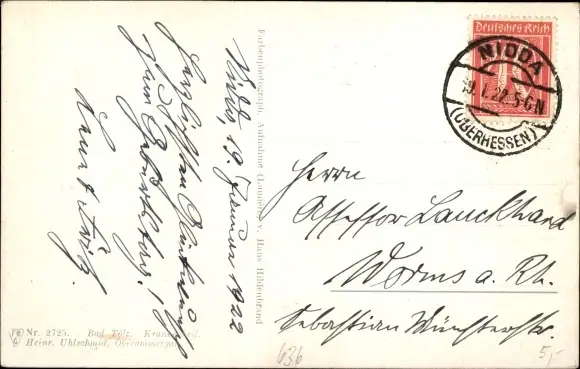 Nidda, 19. Januar 1922
Herzlichsten Glückwunsch
zum Geburtstag!
Farbenphotograph. Aufnahme (Lumière) v. Hans Hildenbrand
Deutsches Reich
NIDDA
19.1.22.5-6N
(OBERHESSEN)
Herrn
Assessor Lauckhard
Worms a. Rh.
Sebastian Münsterstr.
Nr. 2725. Bad Tölz.
Heinr. Uhlschmid, Oberammergau
636
5,-